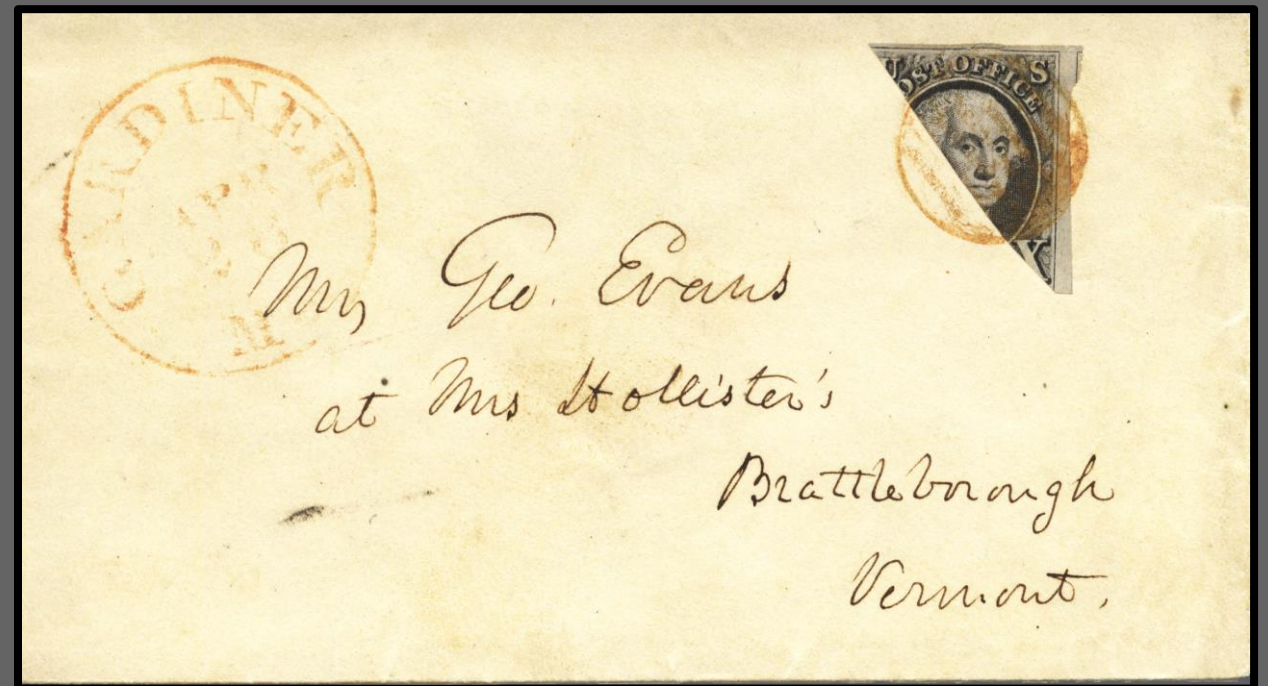 GARDINER
APR
M
U S
POST OFFICE
X
Mr Geo. Evans
at Mrs Hollister's
Brattleborough
Vermont.